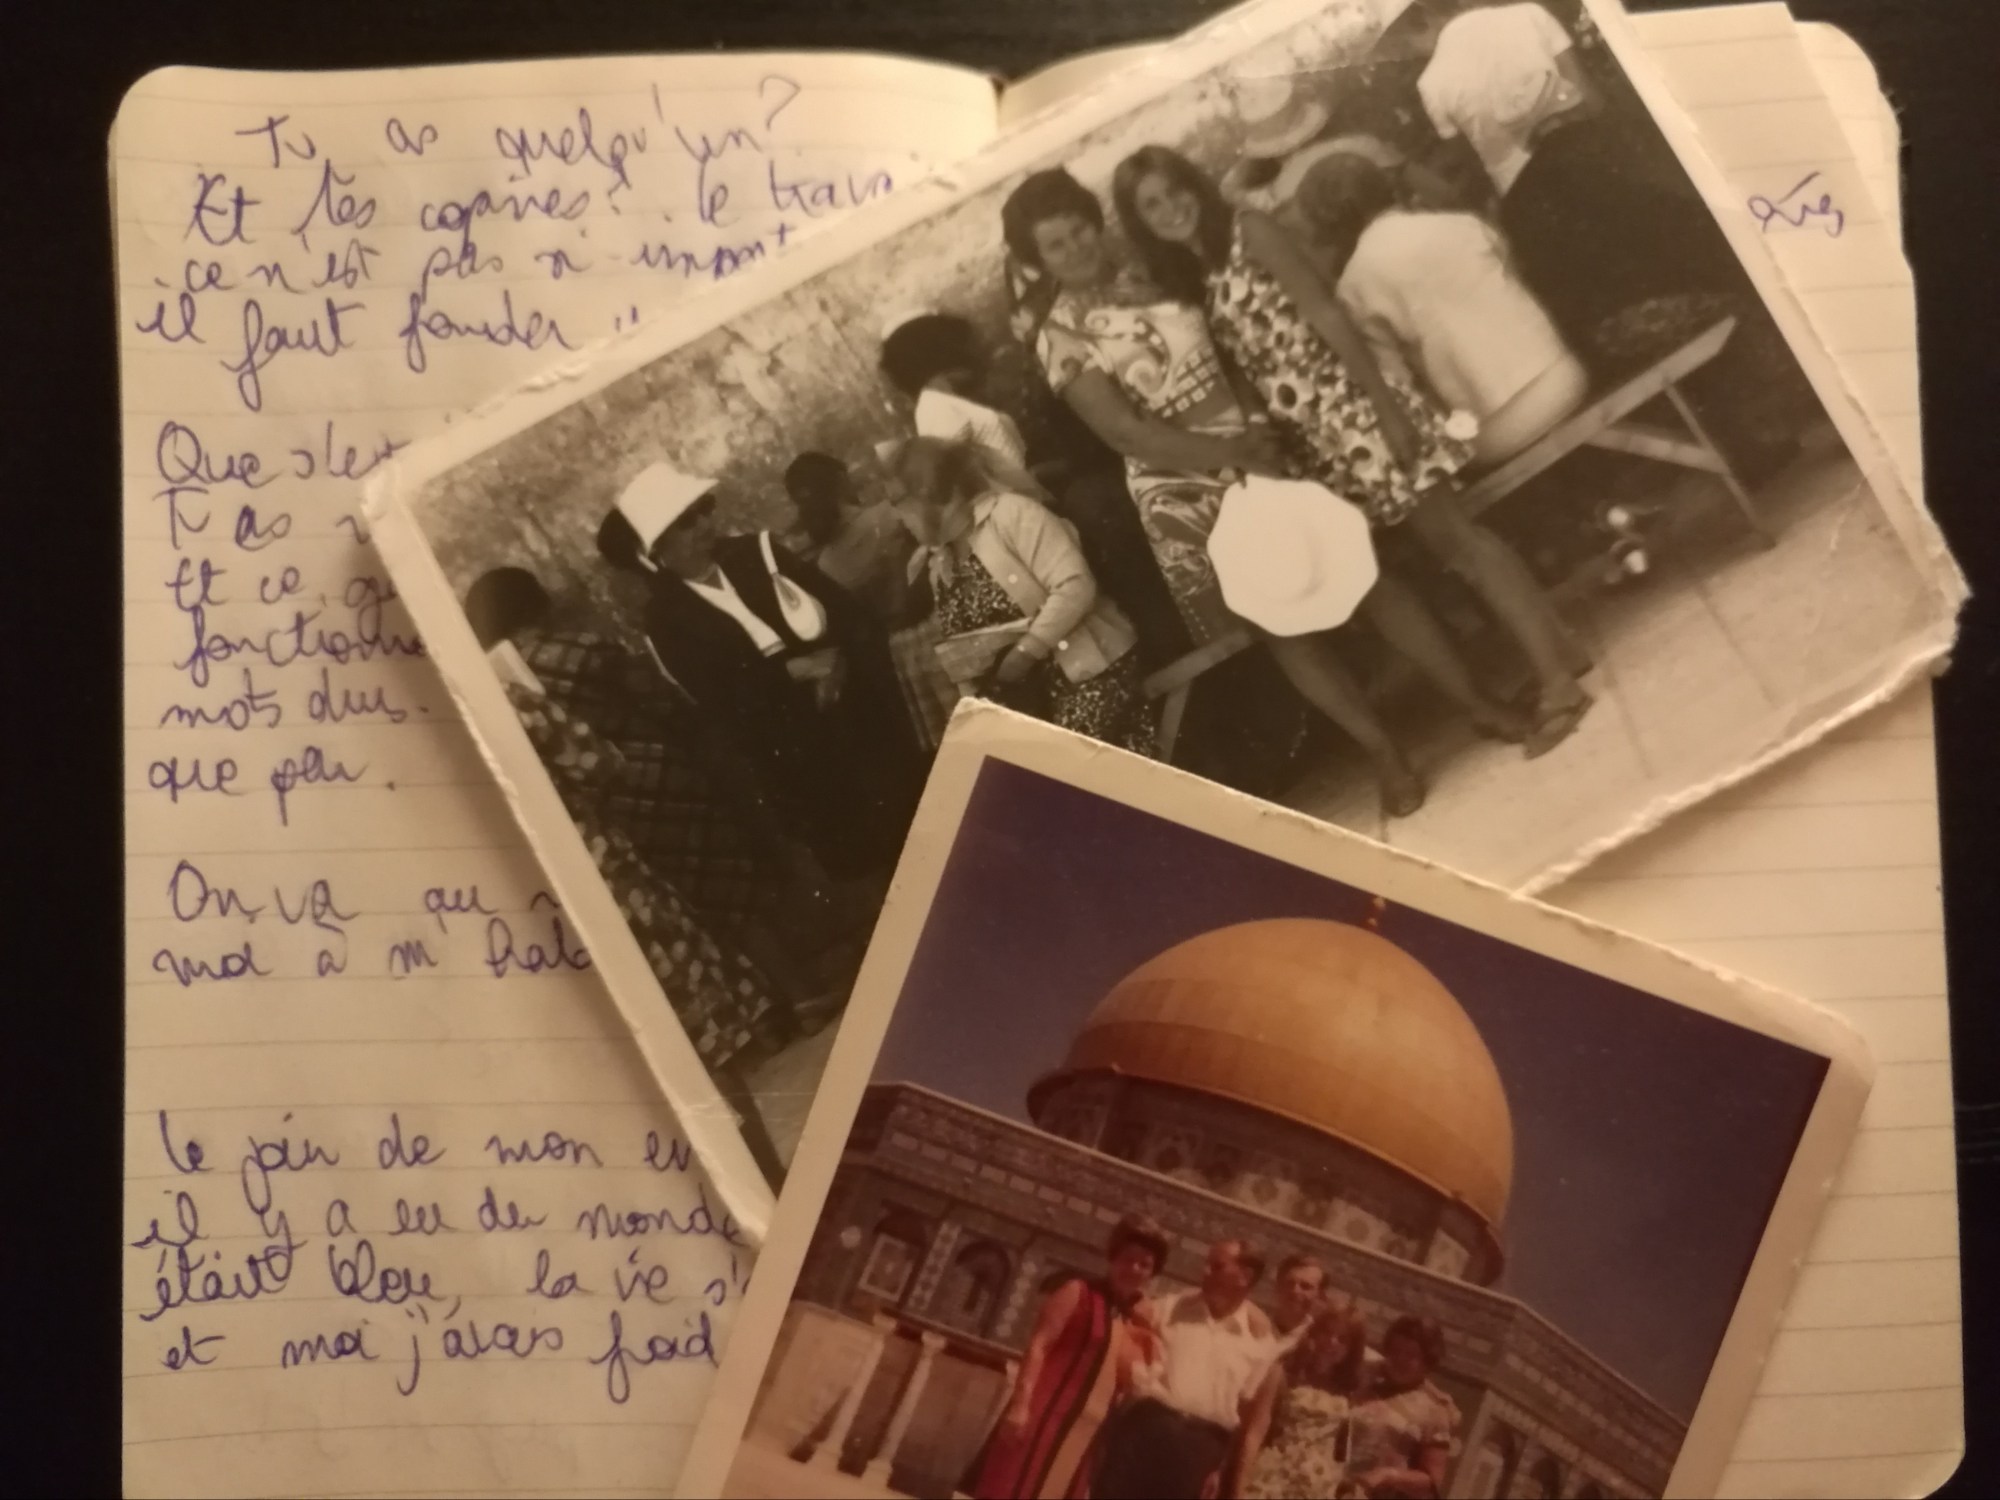 Tu as quelqu'un?
Et tes copines? Le trava
ce n'est pas n'import
il faut fonder u
Que s'est
Tu as
Et ce qu
fonctionne
mots durs.
que peu.
On va au
moi à m'
Le jour de mon en
il y a eu du monde
était bleu, la vie s'
et moi j'avais froid